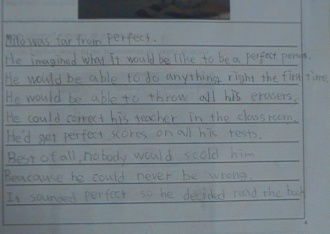 Milo was far from perfect.
He imagined what it would be like to be a perfect person.
He would be able to do anything right the first time.
He would be able to throw all his erasers.
He could correct his teacher in the classroom.
He'd get perfect scores on all his tests.
Best of all, nobody would scold him
Beacause he could never be wrong.
It sounded perfect so he decided read the book